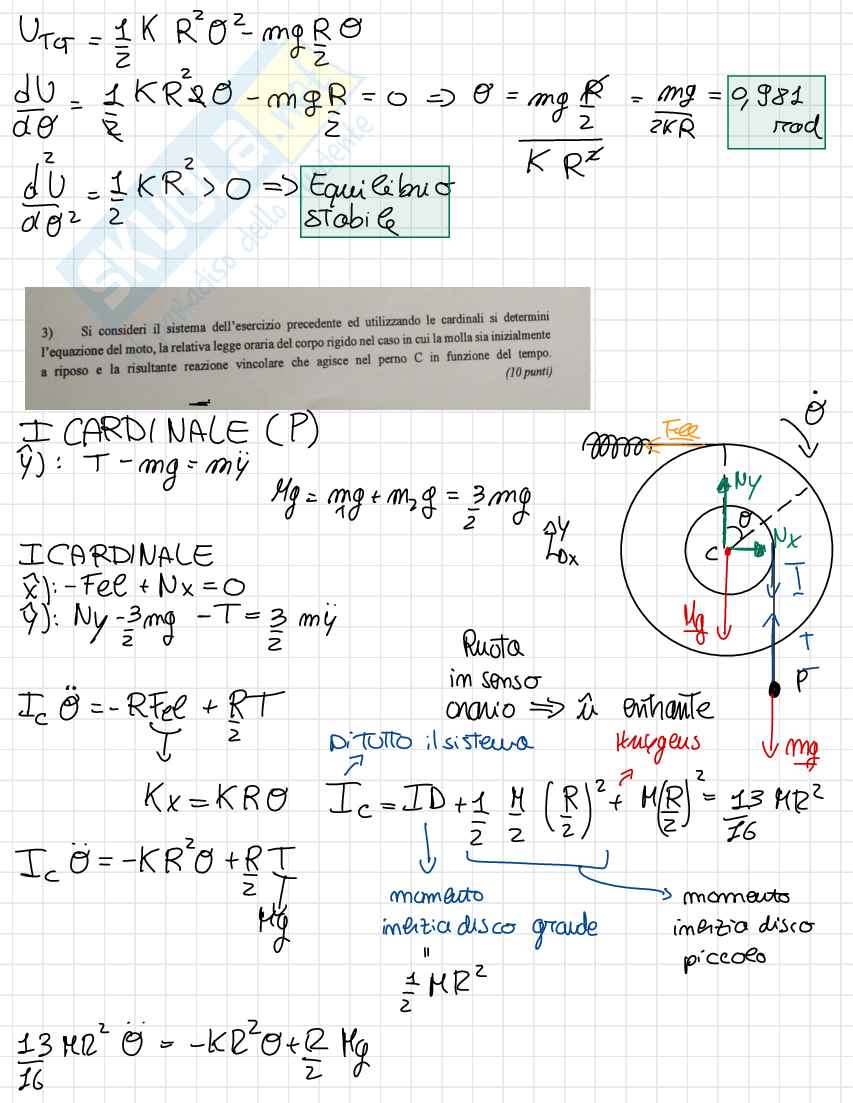 U_TOT = 1/2 K R²θ² - mg R/2 θ
dU/dθ = 1/2 KR² 2θ - mg R/2 = 0 => θ = mg R/2 / K R² = mg/2KR = 0,981 rad
d²U/dθ² = 1/2 KR² > 0 => Equilibrio stabile
SKUOLA.net
il paradiso dello studente
3) Si consideri il sistema dell'esercizio precedente ed utilizzando le cardinali si determini
l'equazione del moto, la relativa legge oraria del corpo rigido nel caso in cui la molla sia inizialmente
a riposo e la risultante reazione vincolare che agisce nel perno C in funzione del tempo.
(10 punti)
I CARDINALE (P)
ŷ): T - mg = mÿ
Mg = m₁g + m₂g = 3/2 mg
I CARDINALE
x̂): -Fel + Nx = 0
ŷ): Ny - 3/2 mg - T = 3/2 mÿ
θ̇
Fel
Ny
θ
Nx
C
T
Mg
T
P
mg
y
x
Ruota
in senso
orario => û entrante
I_C θ̈ = -RFel + R/2 T
Kx = KRθ
DI TUTTO il sistema
Huygens
I_C = ID + 1/2 M/2 (R/2)² + M(R/2)² = 13/16 MR²
I_C θ̈ = -KR²θ + R/2 T
Mg
momento
inerzia disco grande
=
1/2 MR²
momento
inerzia disco
piccolo
13/16 MR² θ̈ = -KR²θ + R/2 Mg